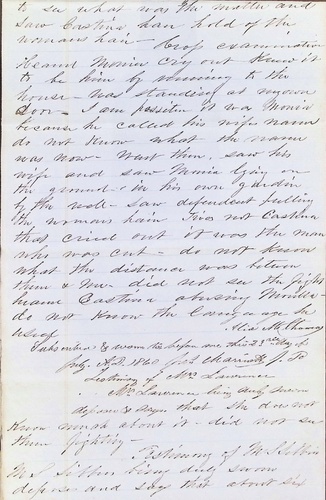 to see what was the matter and
saw Castina han hold of the
womans hair - Cross examination
heard Monia cry out knew it
to be him by running to the
house - was standing at my own
Door - I am positive it was Monia
because he called his wifes name
do not know what the name
was now - went then, saw his
wife and saw Monia lying on
the ground - in his own garden
by the well - saw defendent pulling
the womans hair was not Castina
that cried out it was the man
who was cut - do not know
what the distance was between
them & me - did not see the fight
heard Castina abusing
do not know the language he
used
Subscribed & sworn to before me this 23rd day of
July A.D. 1860 J. P.
Testimony of Mrs Lawrence
Mrs Lawrence being duly sworn
deposes & says that she does not
know much about it - did not see
them fighting -
Testimony of M S
M S being duly sworn
deposes and says that about six